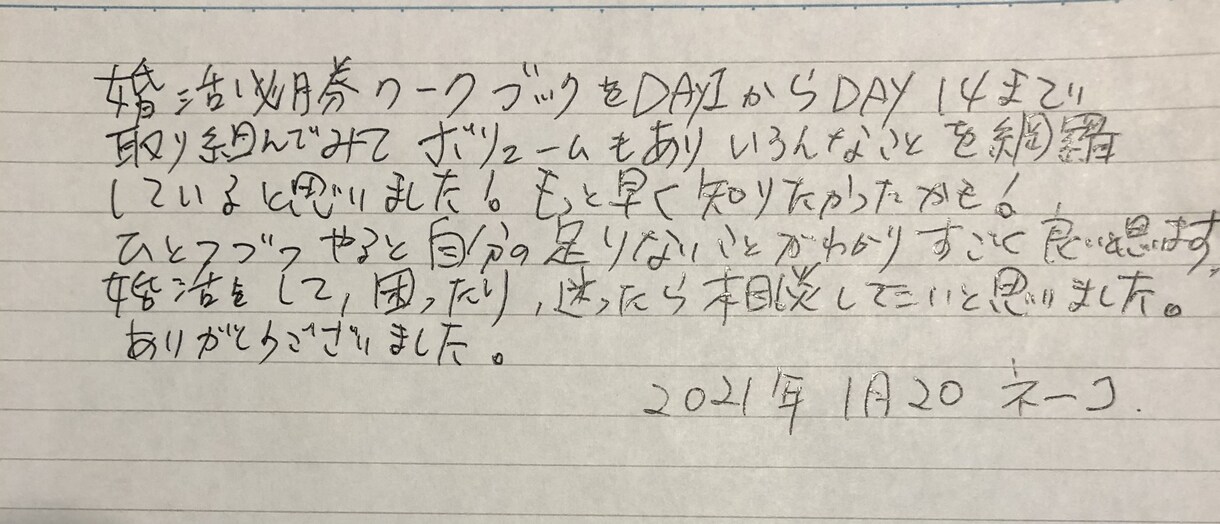 婚活必勝ワークブックをDAY1からDAY14まで
取り組んでみてボリュームもありいろんなことを網羅
していると思いました!もっと早く知りたかったかも!
ひとつづつやると自分の足りないことがわかりすごく良いと思います。
婚活をして,困ったり,迷ったら相談してこいと思いました。
ありがとうございました。
2021年1月20 ネーコ.